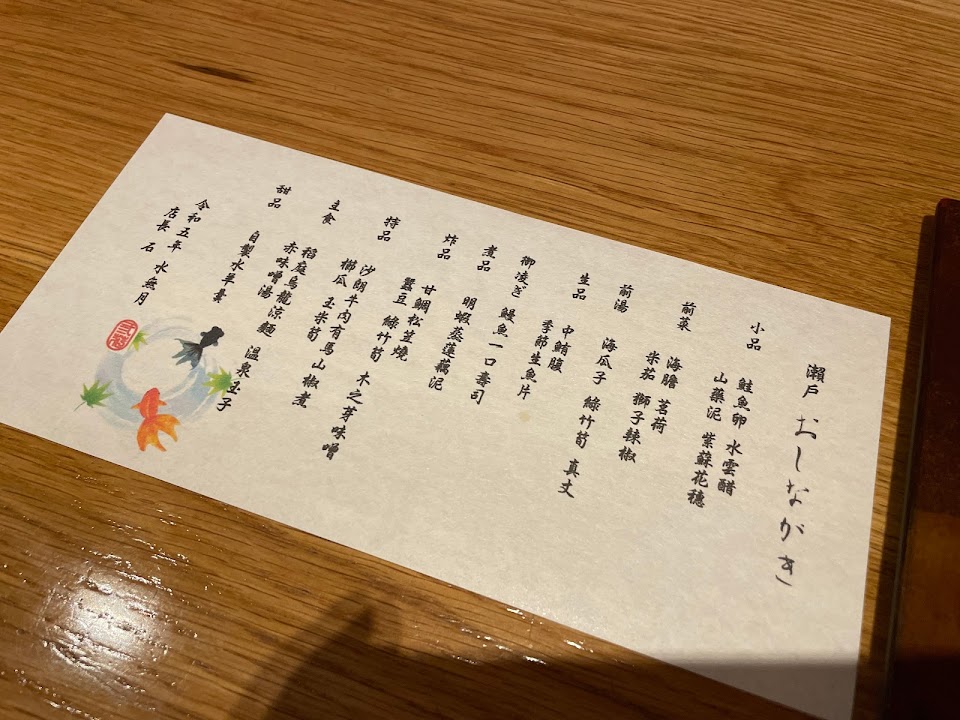 瀬戸 おしながき
小品
鮭魚卵 水雲醋
山藥泥 紫蘇花穗
前菜
海膽 茗荷
柴茄 獅子辣椒
前湯
海瓜子 綠竹筍 真丈
生品
中鮪腹
季節生魚片
御凌ぎ 鰻魚一口壽司
煮品
明蝦蒸蓮藕泥
炸品
甘鯛松笠燒
蠶豆 綠竹筍 木之芽味噌
特品
沙朗牛肉有馬山椒煮
櫛瓜 玉米筍
主食
稻庭烏龍涼麵 溫泉玉子
赤味噌湯
甜品
自製水羊羹
令和五年 水無月
店長 石